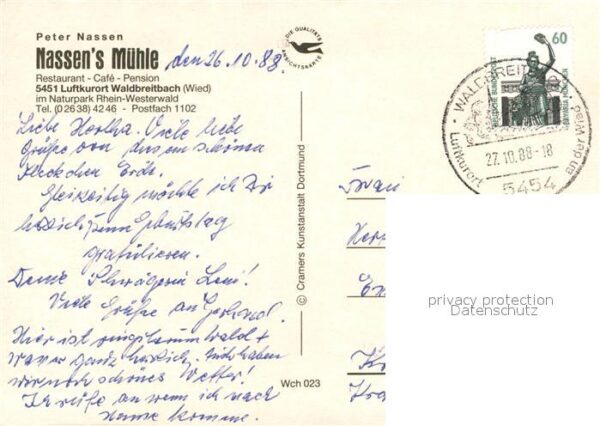 Peter Nassen
Nassen's Mühle den 26.10.88.
Restaurant - Café - Pension
5451 Luftkurort Waldbreitbach (Wied)
im Naturpark Rhein-Westerwald
Tel. (0 26 38) 42 46 - Postfach 1102
Liebe Hertha. Viele liebe
Grüße von diesem schönen
Fleckchen Erde.
Gleizeitig möchte ich Dir
herzlich zum Geburtstag
gratulieren.
Deine Schwägerin Leni!
Viele Grüße an Gerhard.
Hier ist ringsherum Wald +
ganz herrlich. haben
wir noch schönes Wetter!
Ich rufe an wenn ich nach
Hause komme.
DIE QUALITÄTS
ANSICHTSKARTE
© Cramers Kunstanstalt Dortmund
Wch 023
60
DEUTSCHE BUNDESPOST
BAVARIA MÜNCHEN
WALDBREIT
27.10.88-18
Luftkurort
an der Wied
5454
Frau
privacy protection
Datenschutz